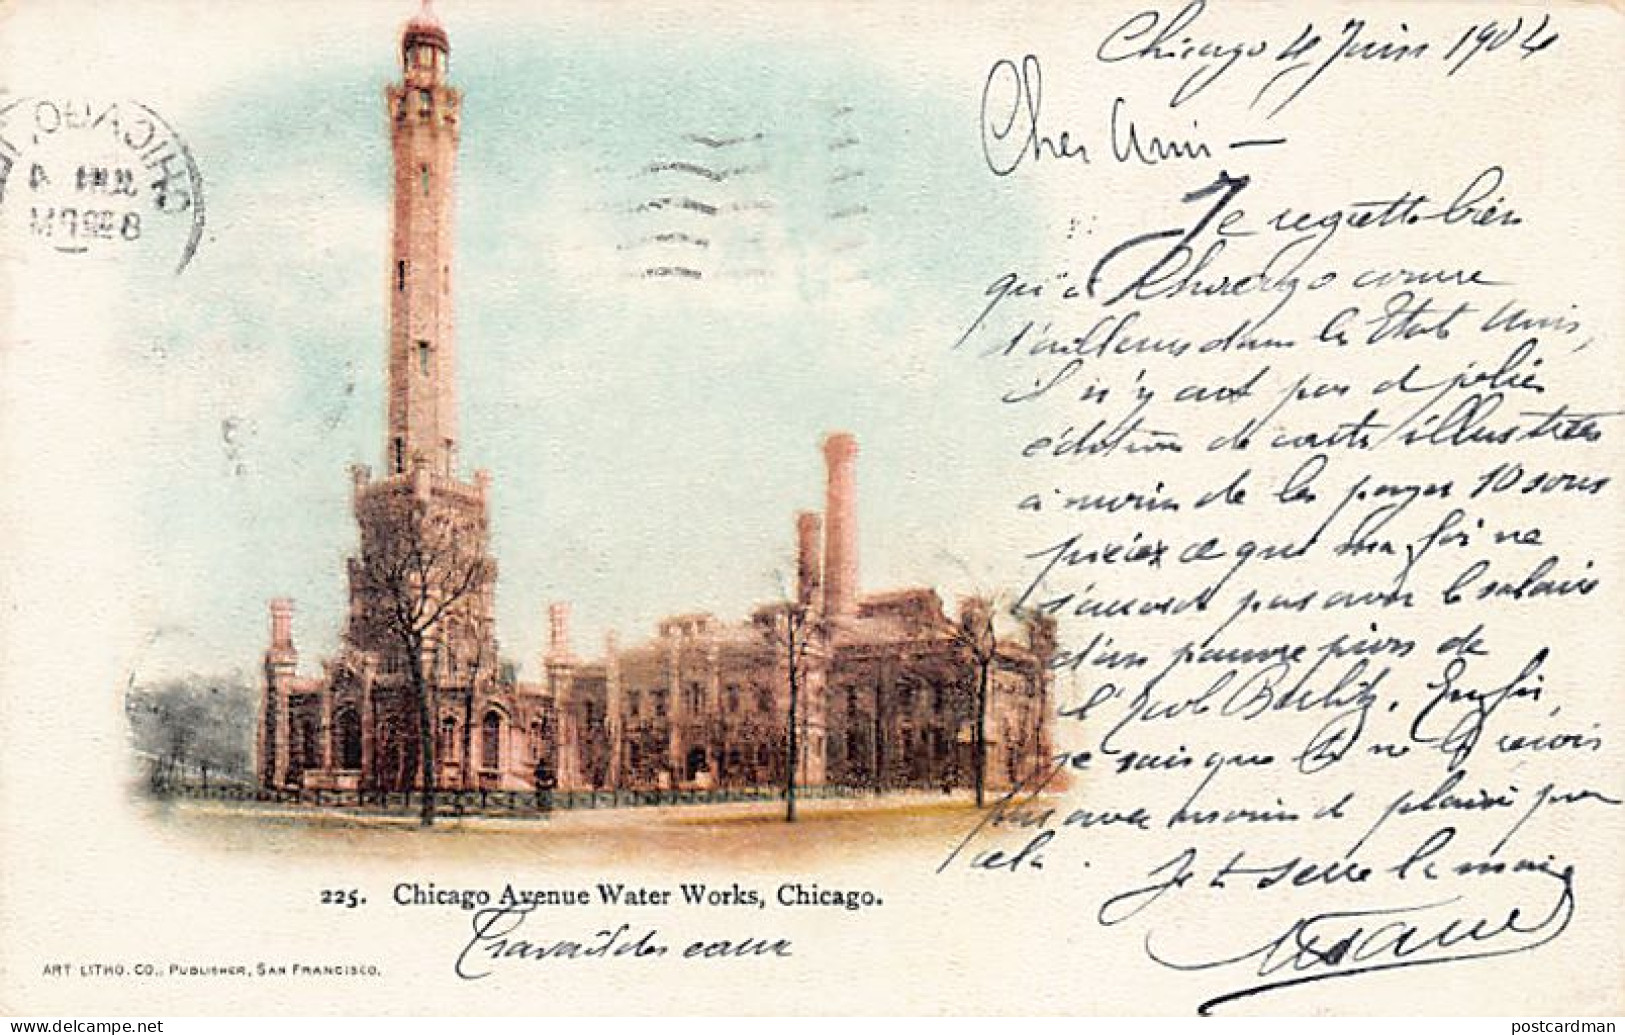 Chicago 4 Juin 1904
Cher Ami —
Je regrette bien
qu'à Chicago comme
d'ailleurs dans les Etats Unis,
il n'y ait pas de jolies
édition de carte illustrées
à moins de les payer 10 sous
pièces ce que ma foi ne
s'accorde pas avec le salaire
d'un pauvre pions de
l'Ecole Berlitz. Enfin,
je sais que tu ne les reçois
pas avec moins de plaisir pour
cela.
Je te serre la main
CHICAGO, IL
8 PM
225. Chicago Avenue Water Works, Chicago.
Travail des eaux
ART LITHO. CO., PUBLISHER, SAN FRANCISCO.
postcardman